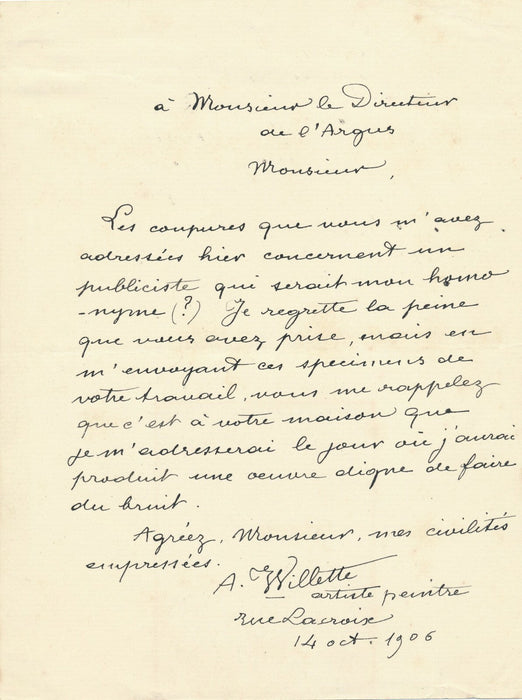 à Monsieur le Directeur
de l'Argus
Monsieur,
Les coupures que vous m'avez
adressées hier concernent un
publiciste qui serait mon homo
-nyme (?) Je regrette la peine
que vous avez prise, mais en
m'envoyant ces specimens de
votre travail, vous me rappelez
que c'est à votre maison que
je m'adresserai le jour où j'aurai
produit une oeuvre digne de faire
du bruit.
Agréez, Monsieur, mes civilités
empressées.
A. Willette
artiste peintre
rue Lacroix
14 oct. 1906